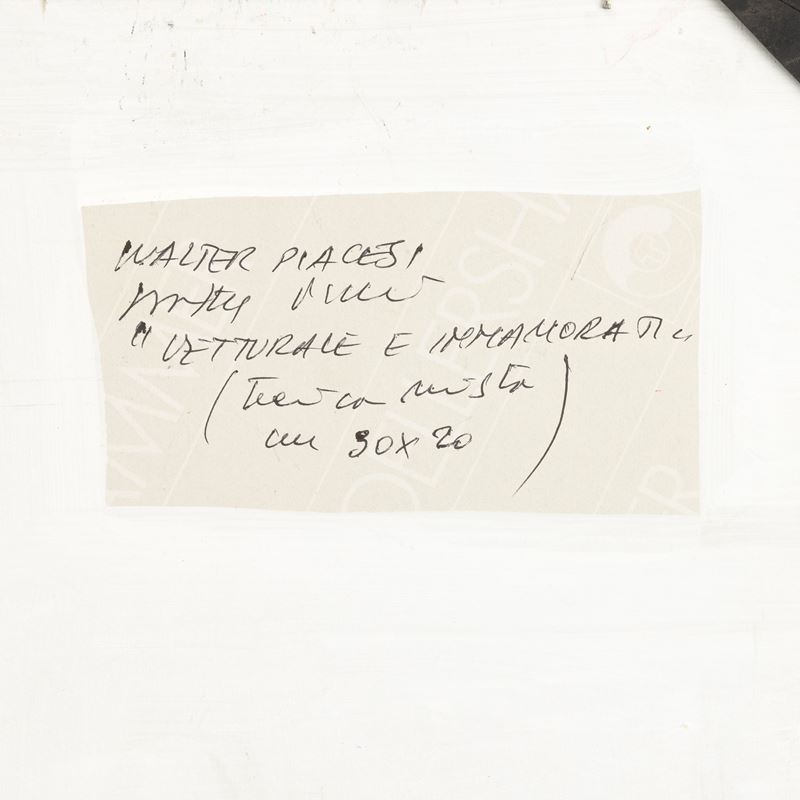 WALTER PIACESI
" VETTURALE E INNAMORATI "
(tecnica mista
cm 30x20 )